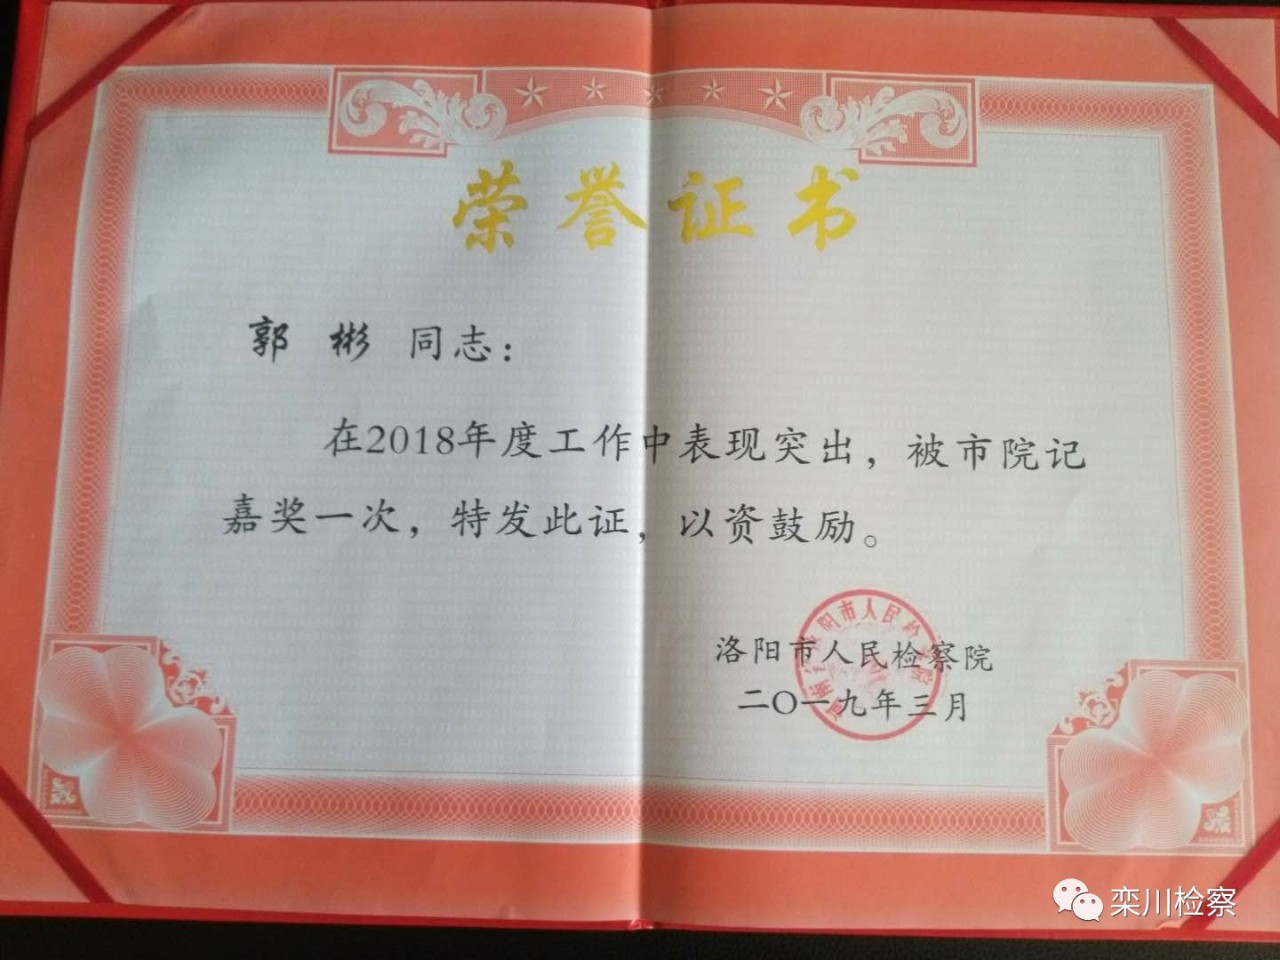 荣誉证书
郭 彬 同志：
在2018年度工作中表现突出，被市院记
嘉奖一次，特发此证，以资鼓励。
洛阳市人民检察院
二〇一九年三月
栾川检察